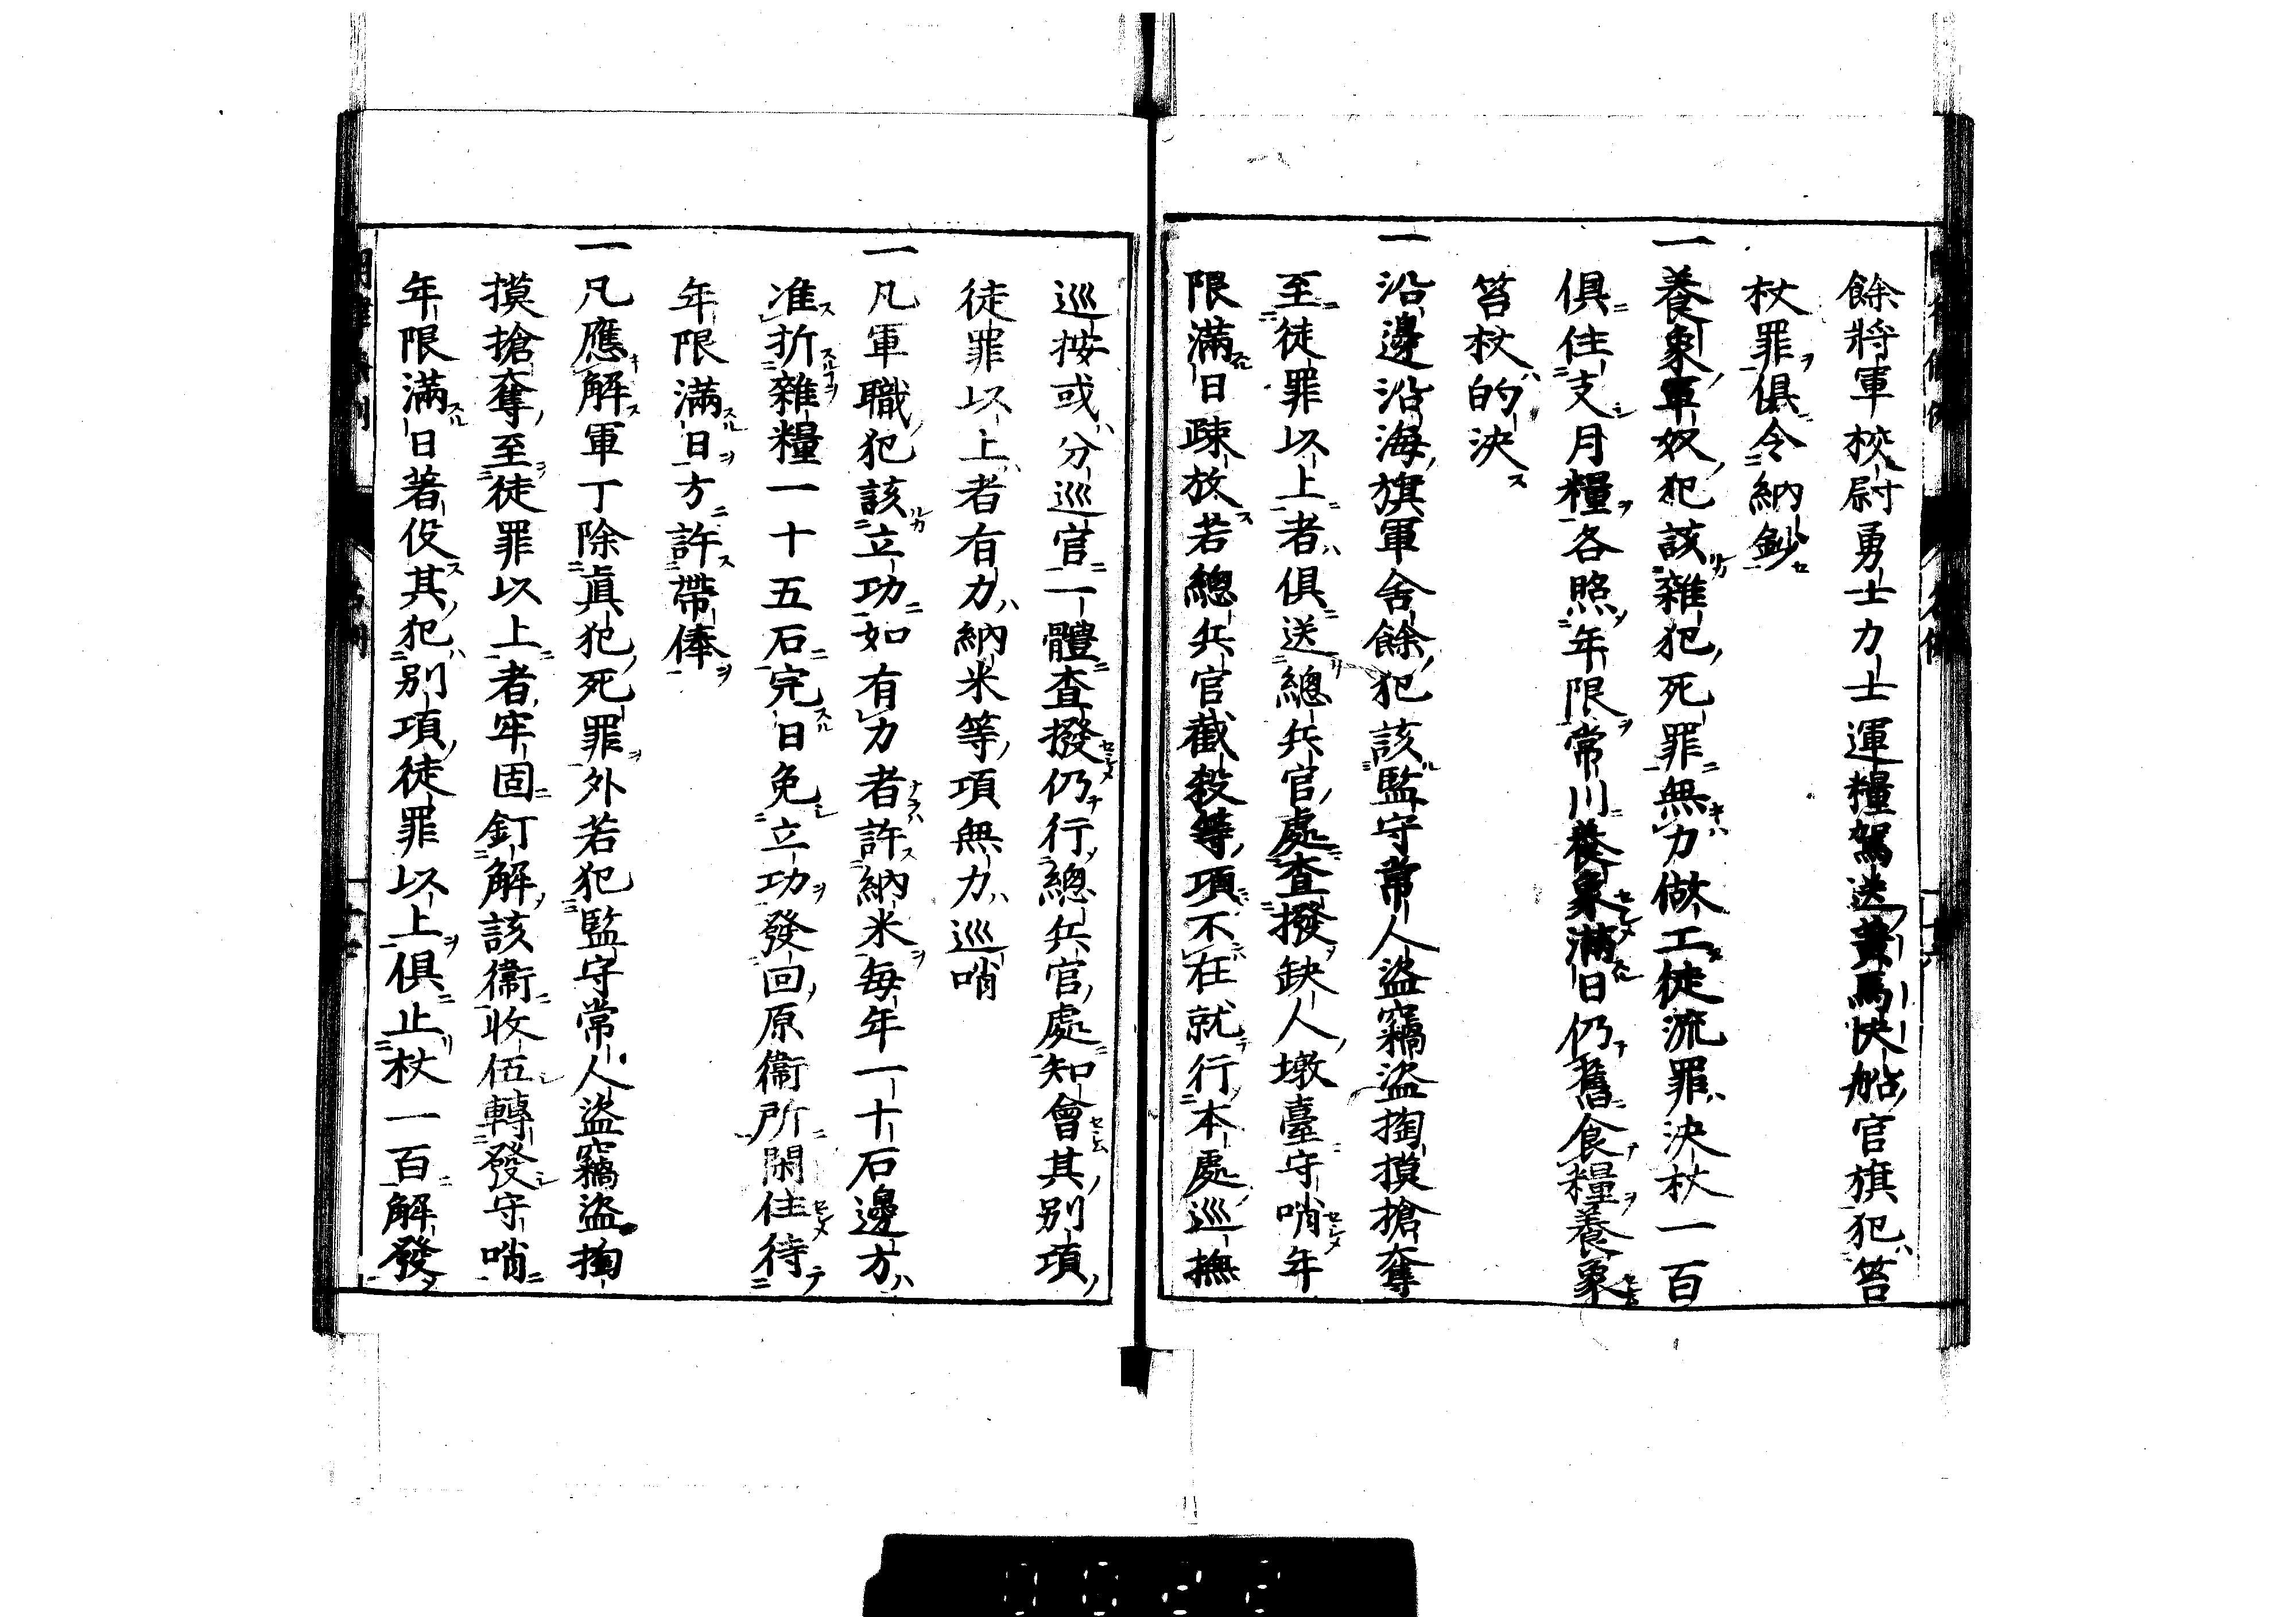 餘將軍校尉勇士力士運糧駕送黃馬快船官旗犯笞
杖罪俱令納鈔
一養象軍奴犯該雜犯死罪無力做工徒流罪決杖一百
俱住支月糧各照年限常川養象滿日仍舊食糧養象
笞杖的決
一沿邊沿海旗軍舍餘犯該監守常人盜竊盜掏摸搶奪
至徒罪以上者俱送總兵官處查撥缺人墩臺守哨年
限滿日疎放若總兵官截殺等項不在就行本處巡撫
巡按或分巡官一體查撥仍行總兵官處知會其別項
徒罪以上者有力納米等項無力巡哨
一凡軍職犯該立功如有力者許納米每年一十石邊方
准折雜糧一十五石完日免立功發回原衞所閑住待
年限滿日方許帶俸
一凡應解軍丁除眞犯死罪外若犯監守常人盜竊盜掏
摸搶奪至徒罪以上者牢固釘解該衞收伍轉發守哨
年限滿日著役其犯別項徒罪以上俱止杖一百解發